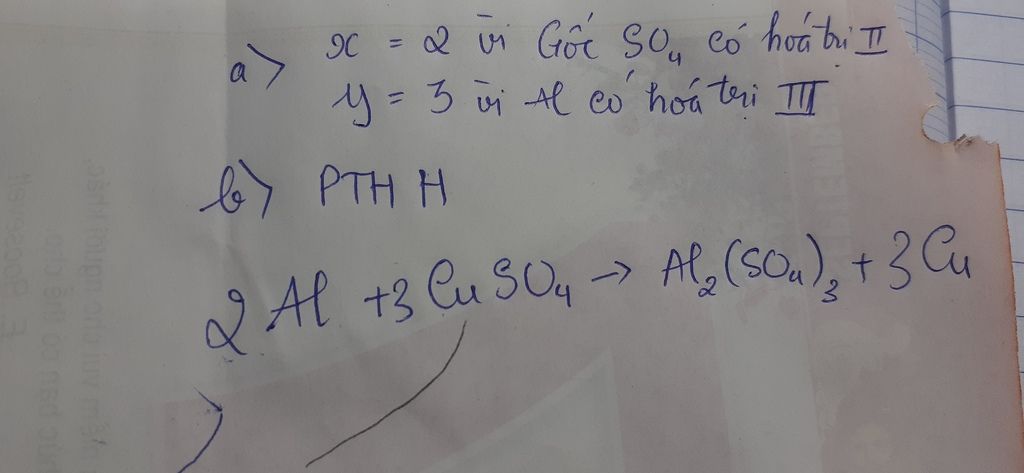 a> x = 2 vì Gốc SO₄ có hoá trị II
y = 3 vì Al có hoá trị III
b> PTHH
2Al + 3CuSO₄ → Al₂(SO₄)₃ + 3Cu